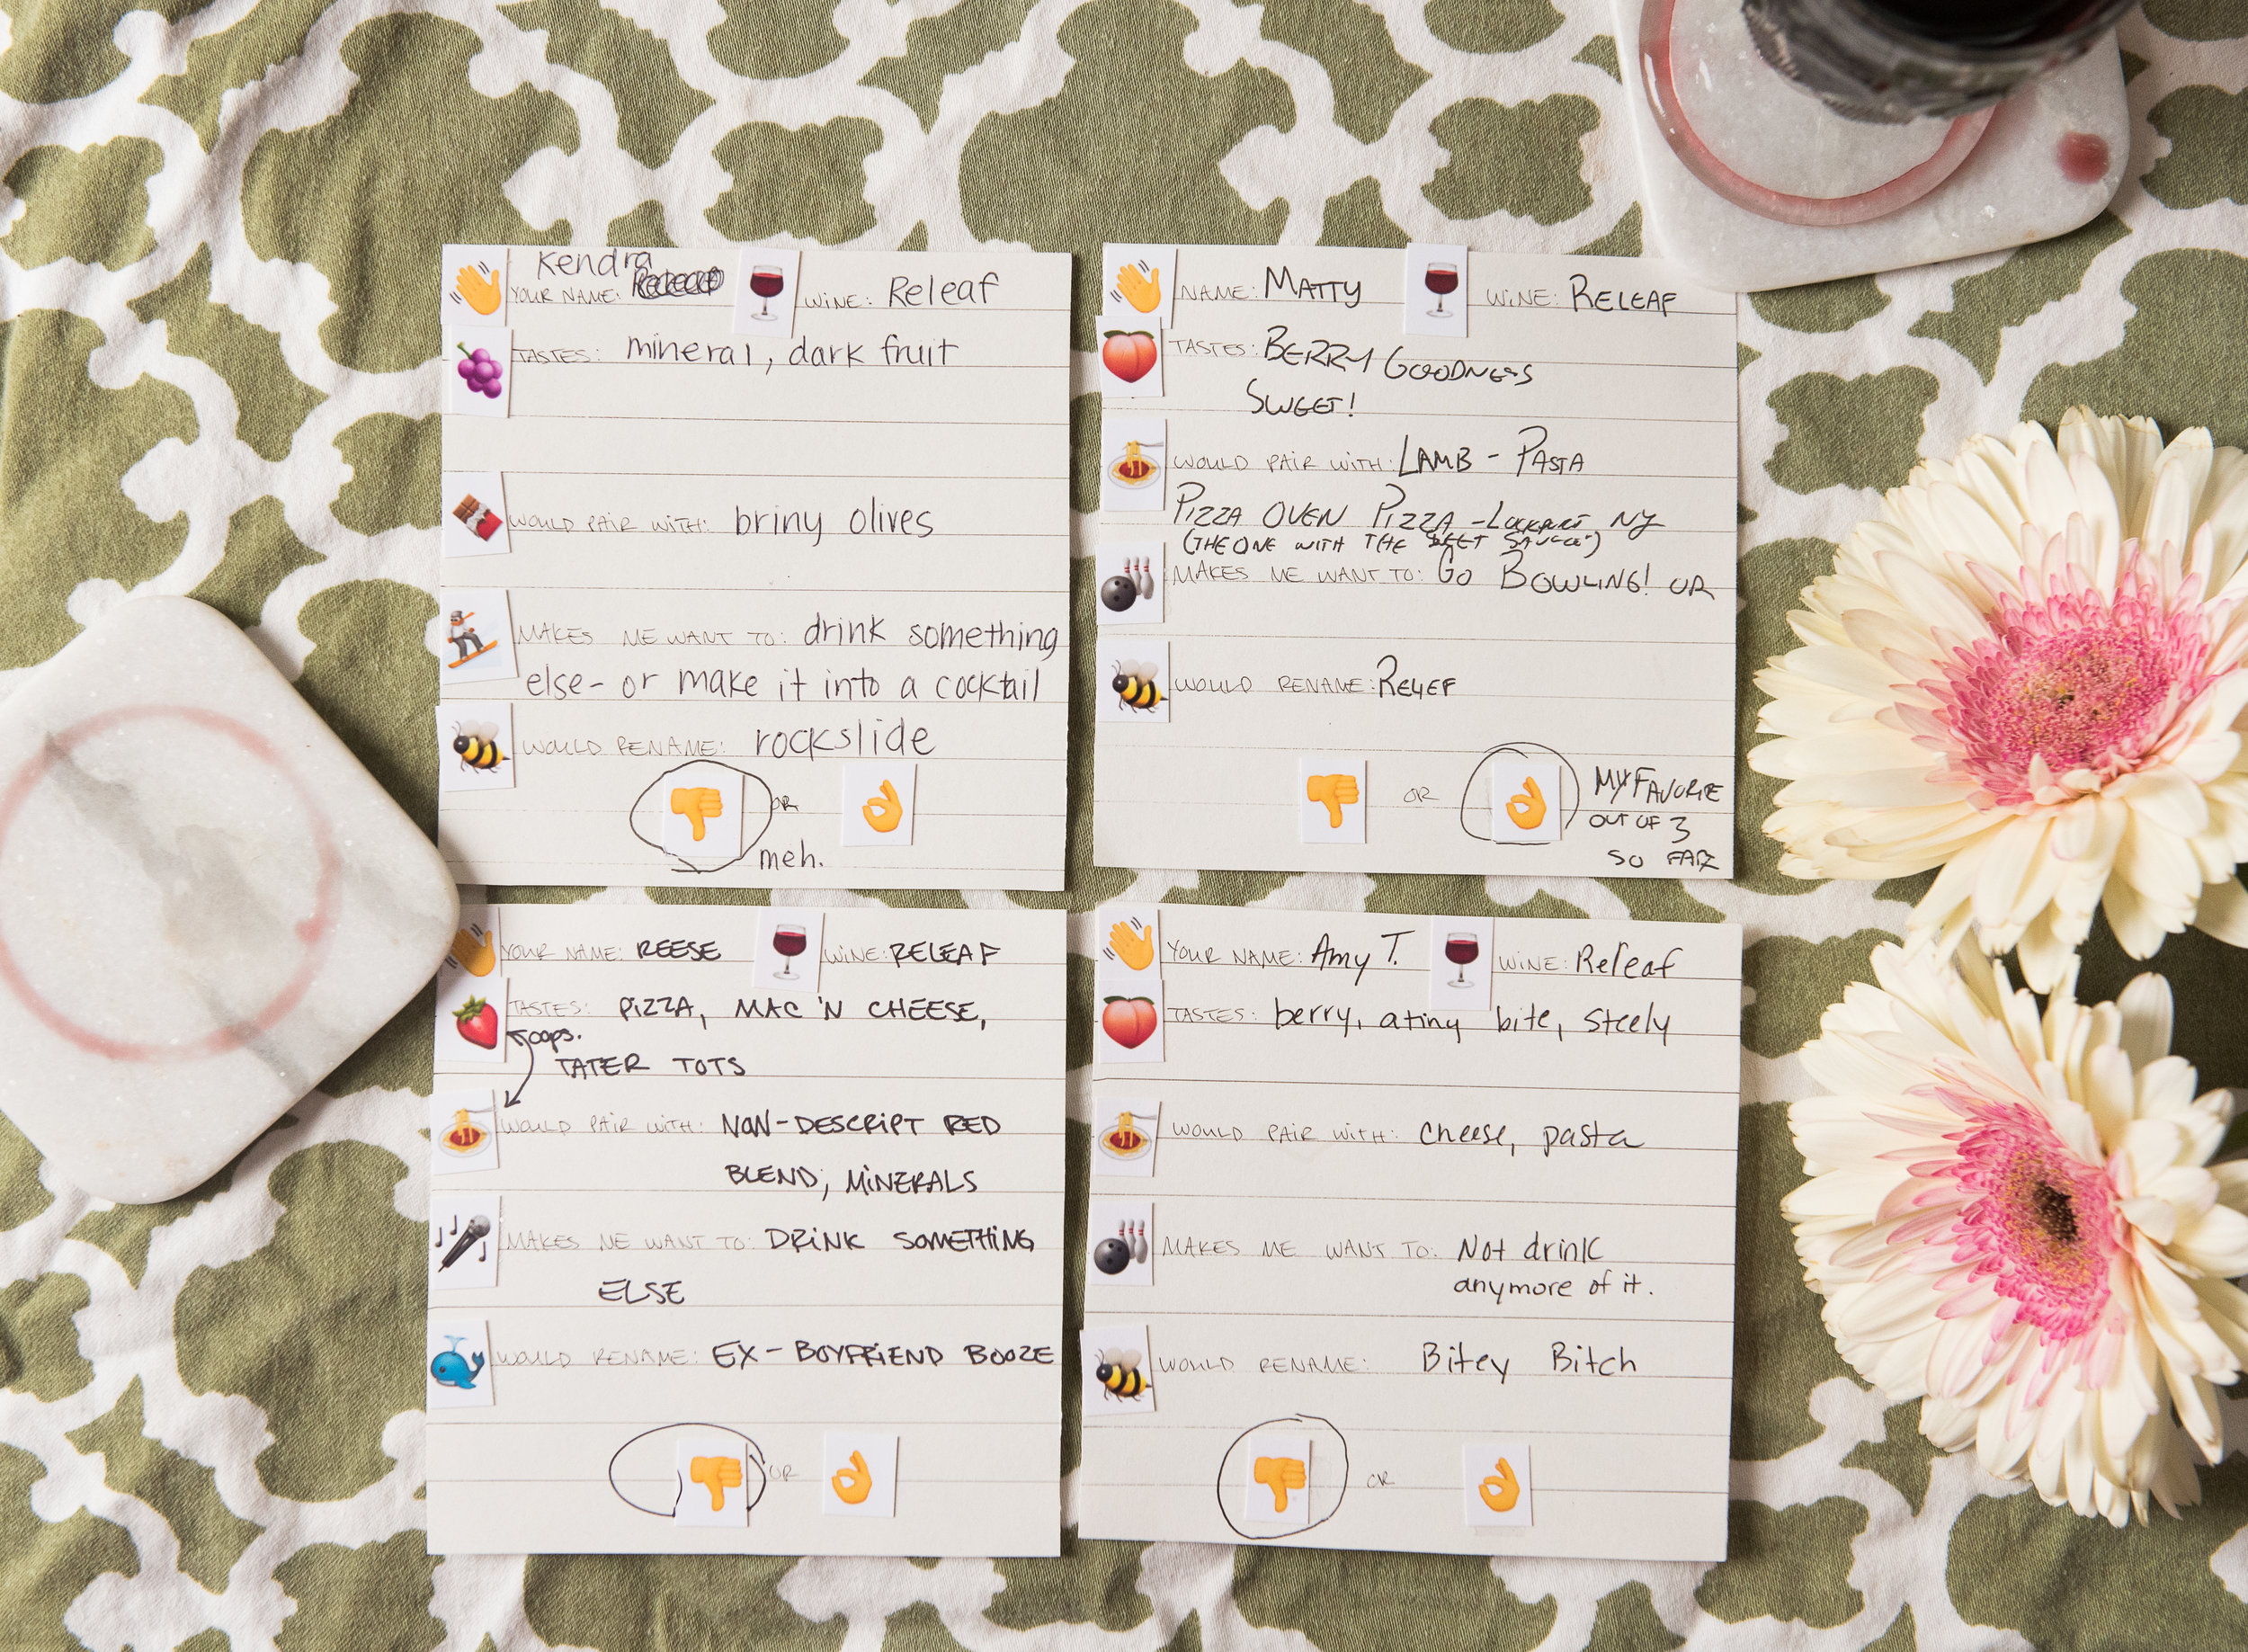 Kendra
YOUR NAME: WINE: Releaf
TASTES: mineral, dark fruit
WOULD PAIR WITH: briny olives
MAKES ME WANT TO: drink something
else- or make it into a cocktail
WOULD RENAME: rockslide
OR
meh.
NAME: MATTY WINE: RELEAF
TASTES: BERRY GOODNESS
SWEET!
WOULD PAIR WITH: LAMB - PASTA
PIZZA OVEN PIZZA - LOCKPORT NY
(THE ONE WITH THE SAUCE)
MAKES ME WANT TO: GO BOWLING! OR
WOULD RENAME: RELIEF
OR
MY FAVORITE
OUT OF 3
SO FAR
YOUR NAME: REESE WINE: RELEAF
TASTES: PIZZA, MAC 'N CHEESE,
oops.
TATER TOTS
WOULD PAIR WITH: NON-DESCRIPT RED
BLEND, MINERALS
MAKES ME WANT TO: DRINK SOMETHING
ELSE
WOULD RENAME: EX-BOYFRIEND BOOZE
OR
YOUR NAME: Amy T. WINE: Releaf
TASTES: berry, a tiny bite, steely
WOULD PAIR WITH: cheese, pasta
MAKES ME WANT TO: Not drink
anymore of it.
WOULD RENAME: Bitey Bitch
OR